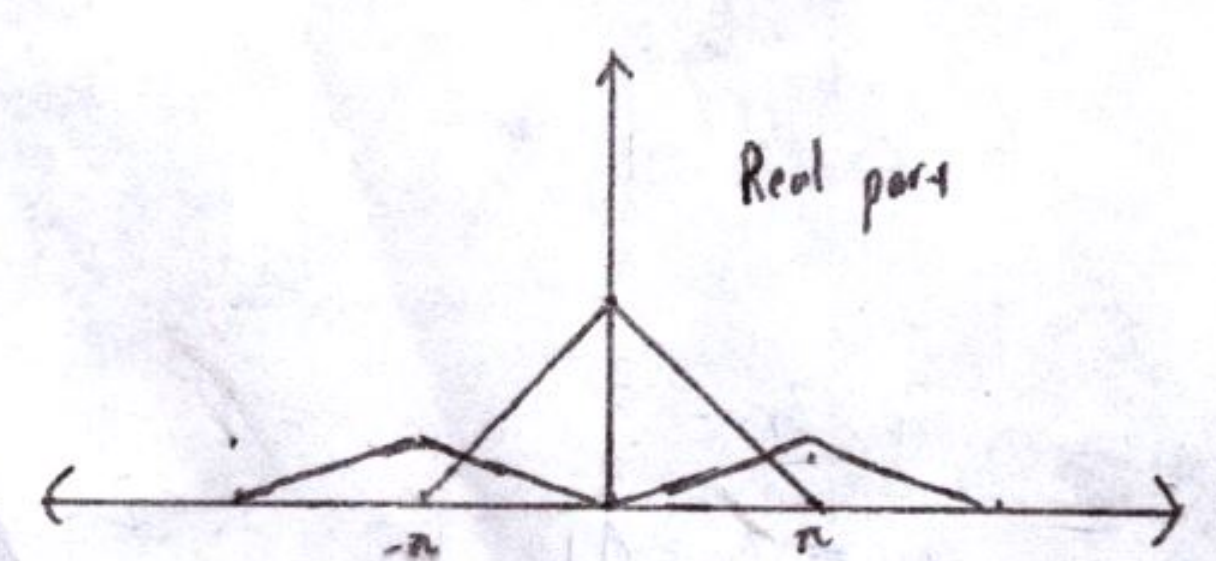 Real part
-π
π